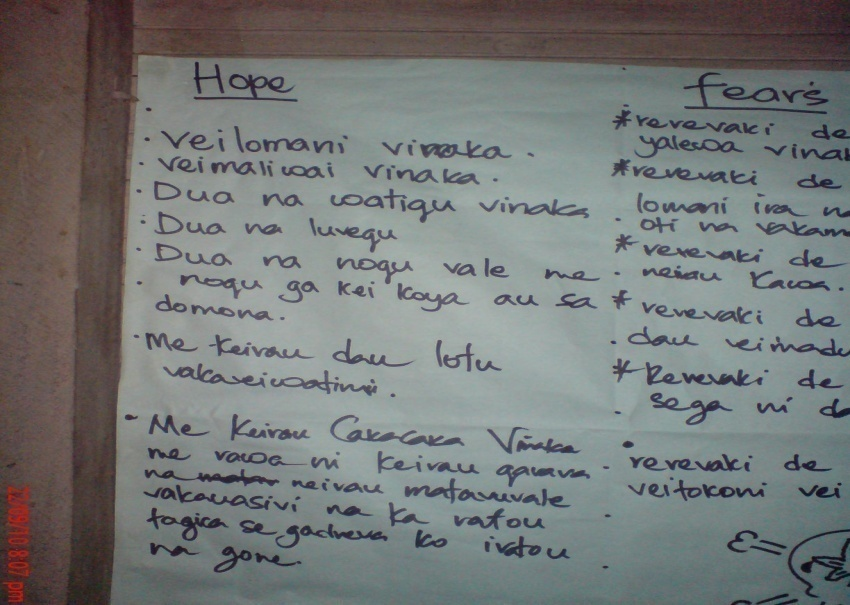 Hope
. veilomani vinaka .
. veimaliwai vinaka .
. Dua na watiqu vinaka
. Dua na luvequ
. Dua na noqu vale me
. noqu ga kei koya au sa
domona.
. Me keirau dau lotu
vakaveiwatini .
. Me keirau Cakacaka Vinaka
me rawa ni keirau qarava
na neirau matavuvale
vakauasivi na ka ratou
tagica se gadreva ko iratou
na gone.
fears
* rerevaki de
yalewa
* rerevaki de
lomani ira
. oti na
* rerevaki de
. neirau kawa.
* rerevaki de
. dau
* Rerevaki de
. sega ni
. rerevaki de
veitokoni vei
22/09/10 8:07 pm